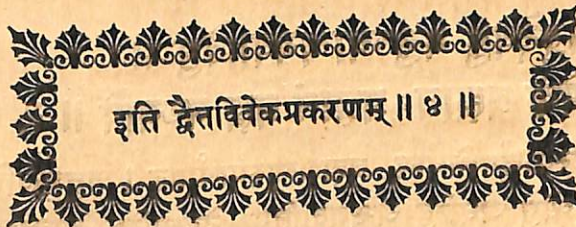 इति द्वैतविवेकप्रकरणम् ॥ ४ ॥